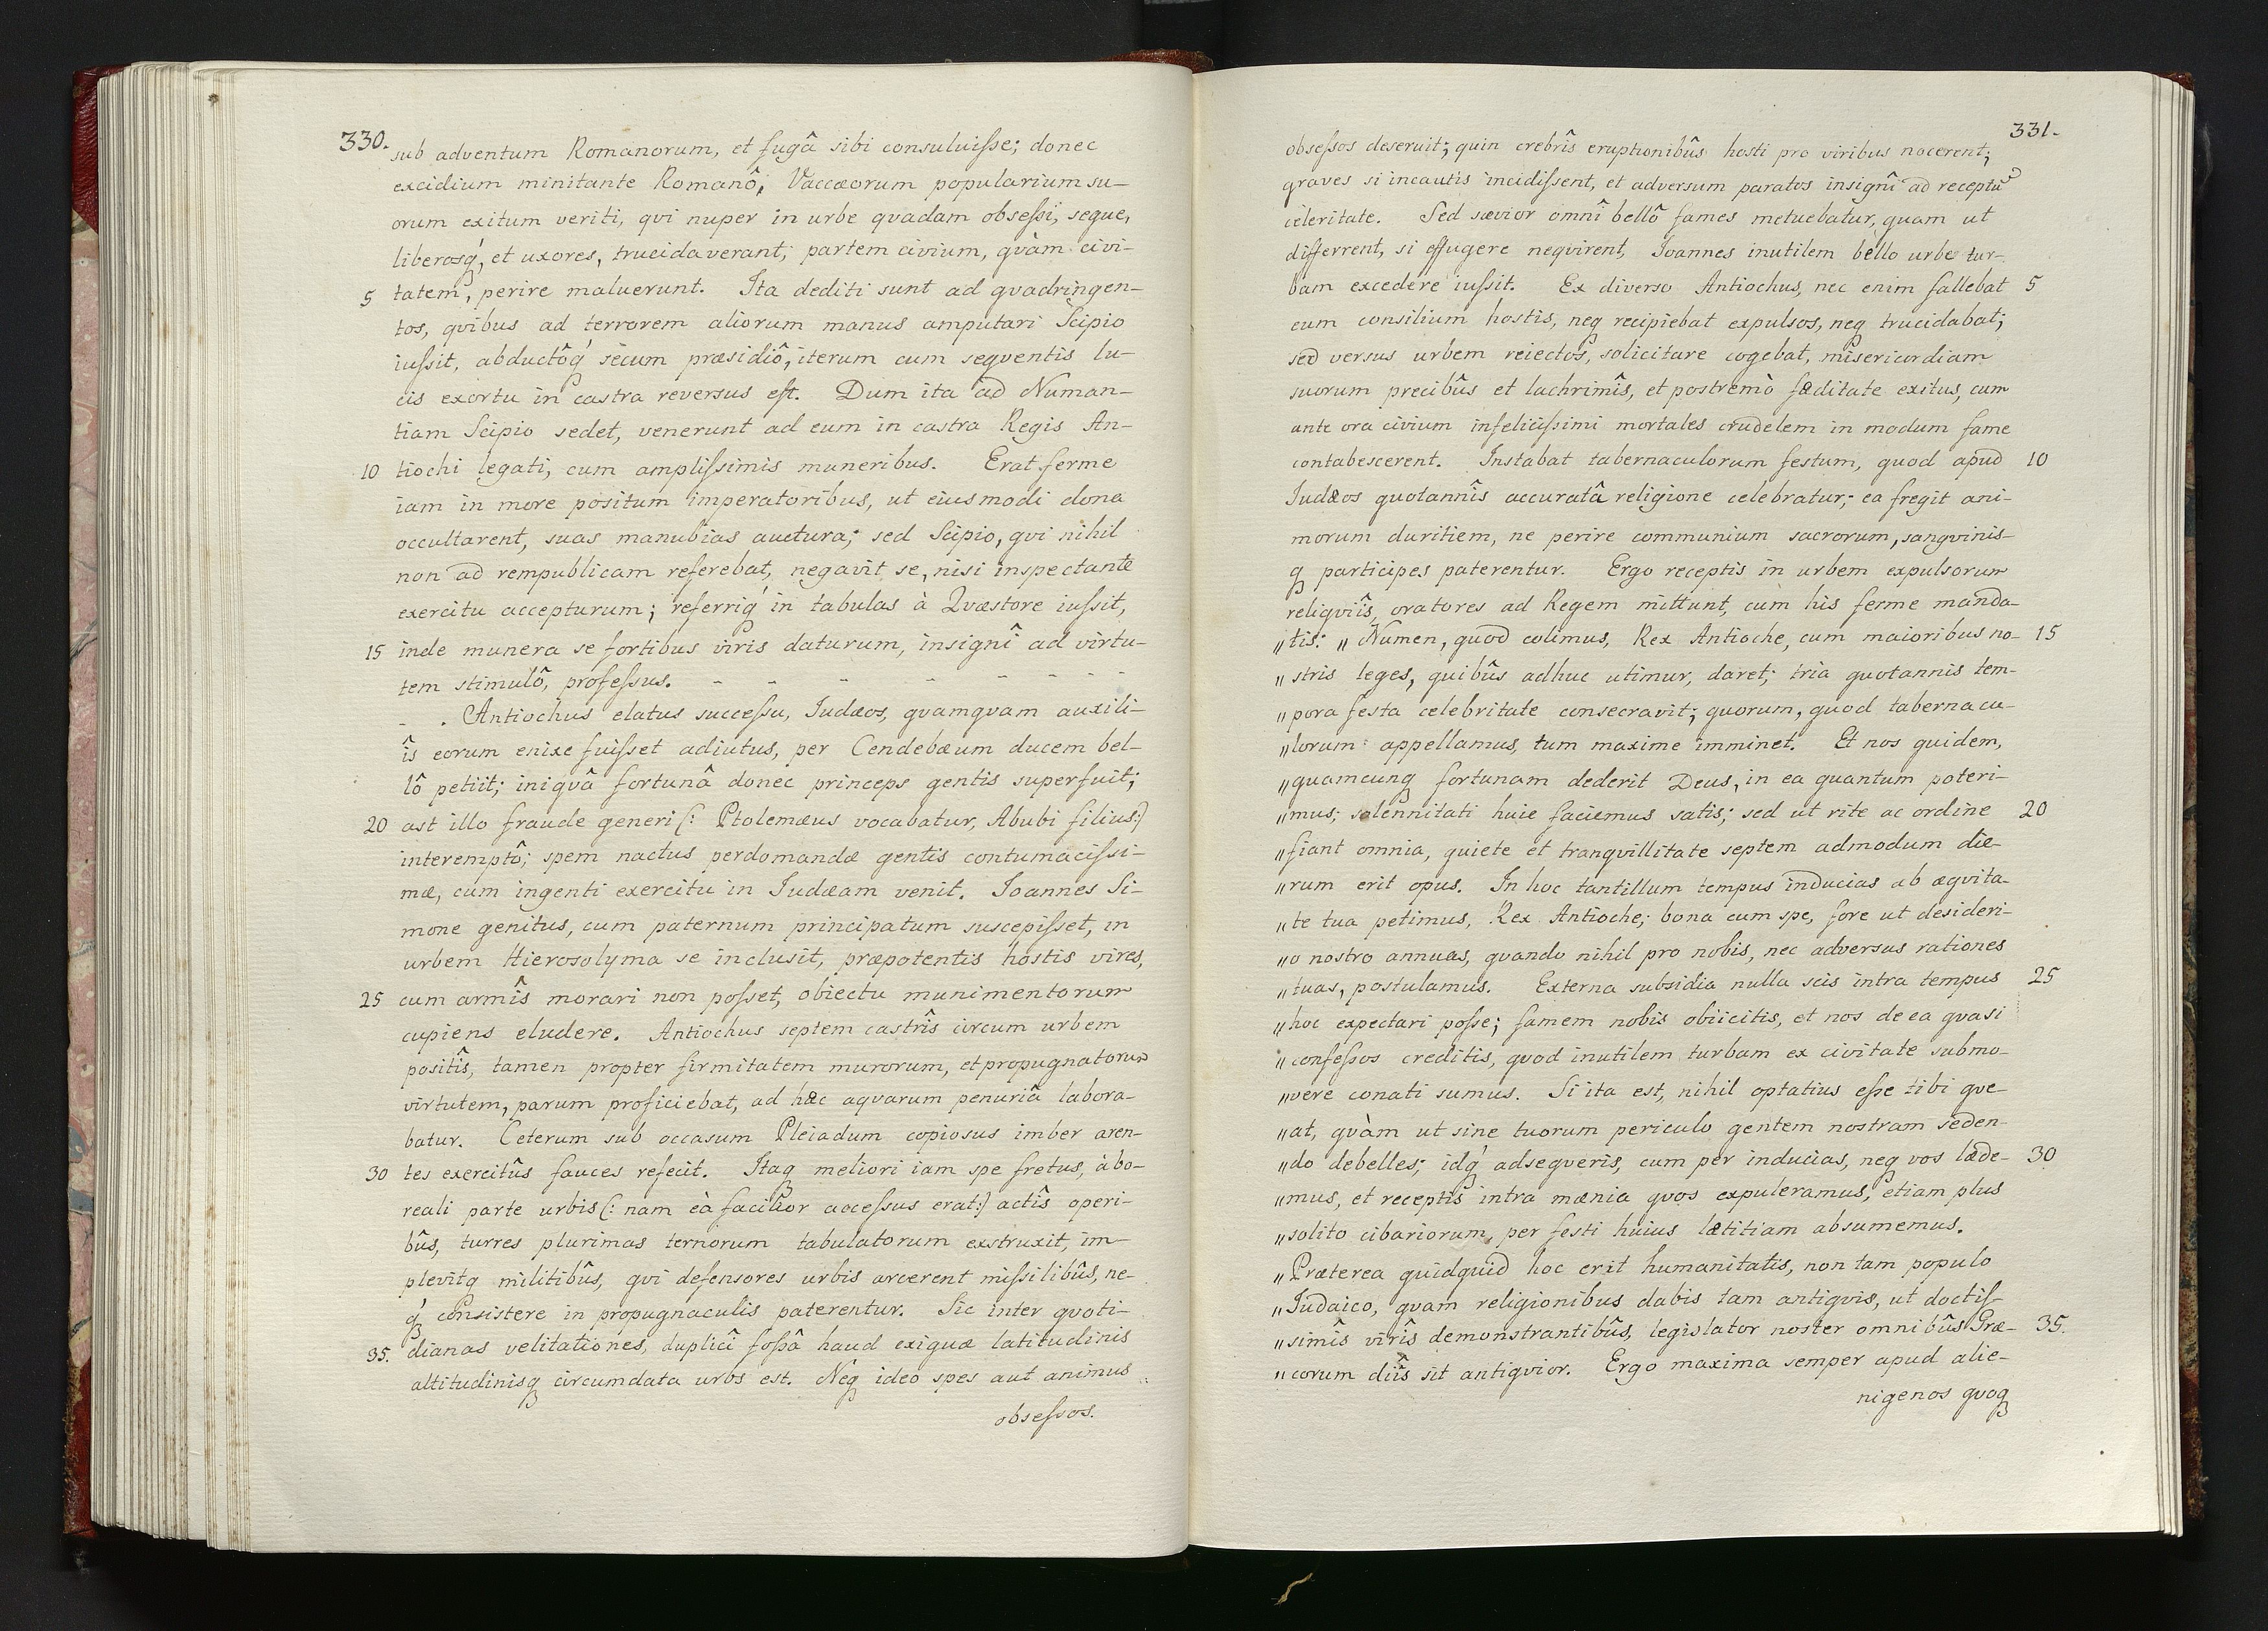 330.
sub adventum Romanorum, et fugâ sibi consuluiſse; donec
excidium minitante Romanô, Vaccæorum popularium su-
orum exitum veriti, qvi nuper in urbe qvadam obseſsi, seque,
liberosq́, et uxores, trucidaverant; partem civium, qvàm civi-
5 tatem, perire maluerunt. Ita dediti sunt ad qvadringen-
tos, qvibus ad terrorem aliorum manus amputari Scipio
iuſsit, abductôq́ secum præsidiô, iterum cum seqventis lu-
cis exortu in castra reversus eſt. Dum ita ad Numan-
tiam Scipio sedet, venerunt ad eum in castra Regis An-
10 tiochi legati, cum ampliſsimis muneribus. Erat ferme
iam in more positum imperatoribus, ut eiusmodi dona
occultarent, suas manubias auctura; sed Scipio, qvi nihil
non ad rempublicam referebat, negavit se, nisi inspectante
exercitu accepturum; referriq́ in tabulas à Qvæstore iuſsit,
15 inde munera se fortibus viris daturum, insignî ad virtu-
tem stimulô, profeſsus. - - - - - - - -
- . Antiochus elatus succeſsu, Iudæos, qvamqvam auxili-
îs eorum enixe fuiſset adiutus, per Cendebæum ducem bel-
lô petiit; iniqvâ fortunâ donec princeps gentis superfuit;
20 ast illo fraude generi (: Ptolemæus vocabatur, Abubi filius:)
interemptô; spem nactus perdomandæ gentis contumaciſsi-
mæ, cum ingenti exercitu in Iudæam venit. Ioannes Si-
mone genitus, cum paternum principatum suscepiſset, in
urbem Hierosolyma se inclusit, præpotentis hostis vires,
25 cum armîs morari non poſset, obiectu munimentorum
cupiens eludere. Antiochus septem castrîs circum urbem
positîs, tamen propter firmitatem murorum, et propugnatorum
virtutem, parum proficiebat, ad hæc aqvarum penuriâ labora-
batur. Ceterum sub occasum Pleiadum copiosus imber aren-
30 tes exercitûs fauces refecit. Itaq meliori iam spe fretus, à bo-
reali parte urbis (: nam eà facilior acceſsus erat:) actîs operi-
bûs, turres plurimas ternorum tabulatorum exstruxit, im-
plevitq militibûs, qvi defensores urbis arcerent miſsilibûs, ne-
q́ consistere in propugnaculis paterentur. Sic inter qvoti-
35. dianas velitationes, duplicî foſsâ haud exiguæ latitudinis
altitudinisq circumdata urbs est. Neq ideo spes aut animus
obseſsos.
331.
obseſsos deseruit; quin crebrîs eruptionibûs hosti pro viribus nocerent;
graves si incautis incidiſsent, et adversum paratos insignî ad receptũ
celeritate. Sed sævior omnî bellô fames metuebatur, quam ut
differrent, si effugere neqvirent, Ioannes inutilem bello urbe tur-
bam excedere iuſsit. Ex diverso Antiochus, nec enim fallebat 5
eum consilium hostis, neq recipiebat expulsos, neq trucidabat;
sed versus urbem reiectos, solicitare cogebat, misericordiam
suorum precibûs et lachrimîs, et postremò fæditate exitus, cum
ante ora civium infeliciſsimi mortales crudelem in modum fame
contabescerent. Instabat tabernaculorum festum, quod apud 10
Iudæos quotannîs accuratâ religione celebratur; ea fregit ani-
morum duritiem, ne perire communium sacrorum, sangvinis-
q participes paterentur. Ergo receptis in urbem expulsorum
religviîs, oratores ad Regem mittunt, cum his ferme manda-
„tis: „ Numen, quod colimus, Rex Antioche, cum maioribus no- 15
„ stris leges, quibûs adhuc utimur, daret; tria quotannis tem-
„ pora festa celebritate consecravit; quorum, quod tabernacu-
„lorum appellamus, tum maxime imminet. Et nos quidem,
„quamcunq fortunam dederit Deus, in ea quantum poteri-
„mus; solennitati huic faciemus satis; sed ut rite ac ordine 20
„fiant omnia, quiete et tranqvillitate septem admodum die-
„rum erit opus. In hoc tantillum tempus inducias ab æqvita-
„te tua petimus, Rex Antioche; bona cum spe, fore ut desideri-
„o nostro annuas, qvando nihil pro nobis, nec adversus rationes
„tuas, postulamus. Externa subsidia nulla scis intra tempus 25
„hoc expectari poſse; famem nobis obiicitis, et nos de ea qvasi
„confeſsos creditis, qvod inutilem turbam ex civitate submo-
„vere conati sumus. Si ita est, nihil optatius eſse tibi qve-
„at, qvàm ut sine tuorum periculo gentem nostram seden-
„do debelles; idq́ adseqveris, cum per inducias, neq vos læde- 30
„mus, et receptis intra mænia qvos expuleramus, etiam plus
„solito cibariorum, per festi huius lætitiam absumemus.
„Præterea quidquid hoc erit humanitatis, non tam populo
„Iudaico, qvam religionibus dabis tam antiqvis, ut doctiſ-
„simîs virîs demonstrantibûs, legislator noster omnibûs Græ- 35.
„corum diîs sit antiqvior. Ergo maxima semper apud alie-
nigenos qvoq